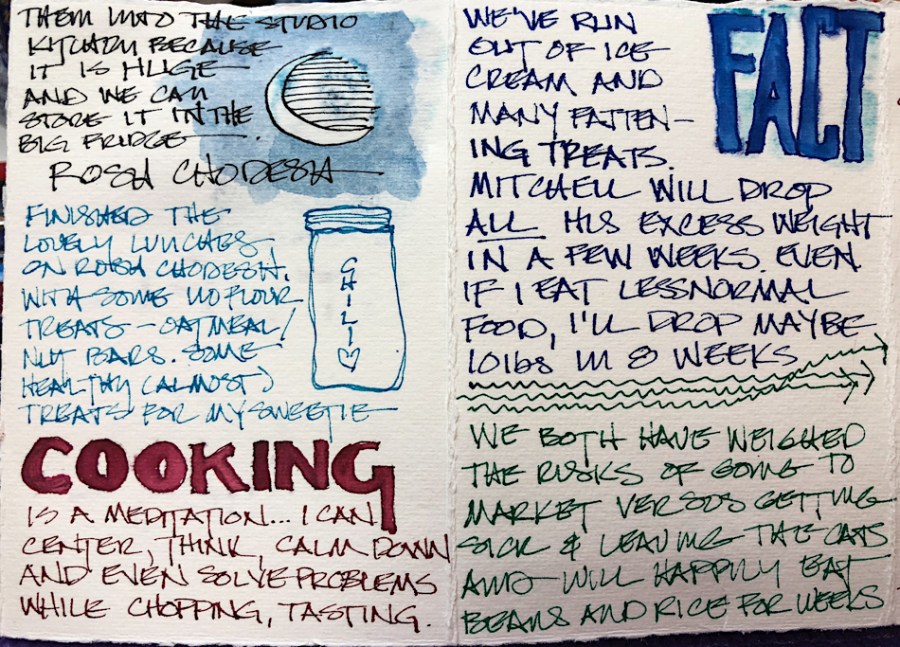 THEM INTO THE STUDIO
KITCHEN BECAUSE
IT IS HUGE
AND WE CAN
STORE IT IN THE
BIG FRIDGE.
ROSH CHODESH
FINISHED THE
LOVELY LUNCHES
ON ROSH CHODESH.
WITH SOME NO FLOUR
TREATS - OATMEAL/
NUT BARS. SOME
HEALTHY (ALMOST)
TREATS FOR MY SWEETIE
CHILI
COOKING
IS A MEDITATION... I CAN
CENTER, THINK, CALM DOWN
AND EVEN SOLVE PROBLEMS
WHILE CHOPPING, TASTING.
FACT
WE'VE RUN
OUT OF ICE
CREAM AND
MANY FATTEN-
ING TREATS.
MITCHELL WILL DROP
ALL HIS EXCESS WEIGHT
IN A FEW WEEKS. EVEN
IF I EAT LESS NORMAL
FOOD, I'LL DROP MAYBE
10 lbs IN 8 WEEKS
WE BOTH HAVE WEIGHED
THE RISKS OF GOING TO
MARKET VERSUS GETTING
SICK & LEAVING THE CATS
AND WILL HAPPILY EAT
BEANS AND RICE FOR WEEKS